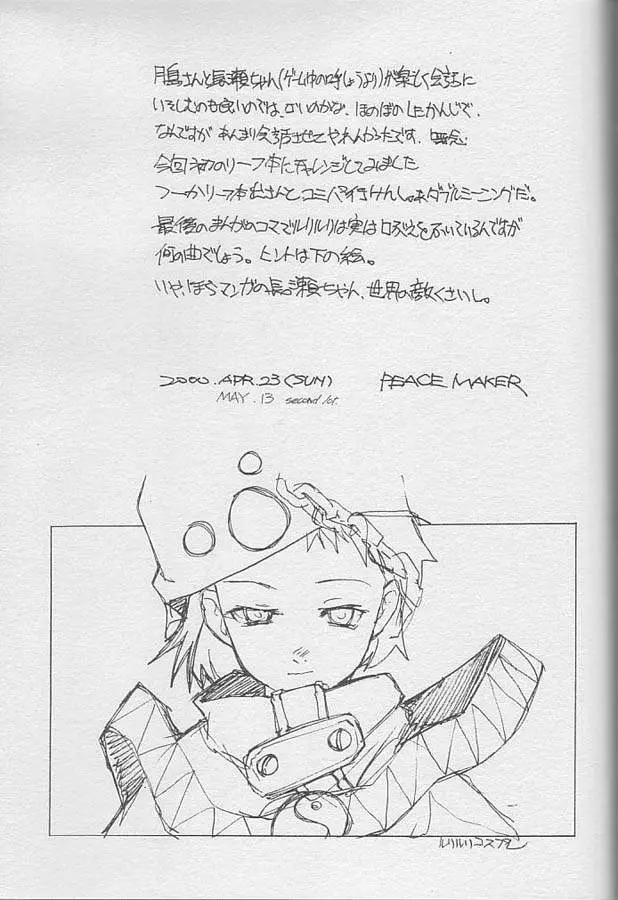 月島さんと長瀬ちゃん(ゲーム中の呼しょうより)が楽しく会話に
いそしむのも良いのでは、ないのかな、ほのぼのしたかんじで、
なんですが あんまり会話させてやれんかったです。無念。
今回初のリーフ本にチャレンジしてみました
つーかリーフ本
最後のまんがのコマでルリルリは実は口ぶえをふいているんですが
何の曲でしょう。ヒントは下の絵。
いや、ほらマンガの長瀬ちゃん、世界の敵くさいし。
2000.APR.23(SUN) PEACE MAKER
MAY.13 second ver.
ルリルリコスプレ